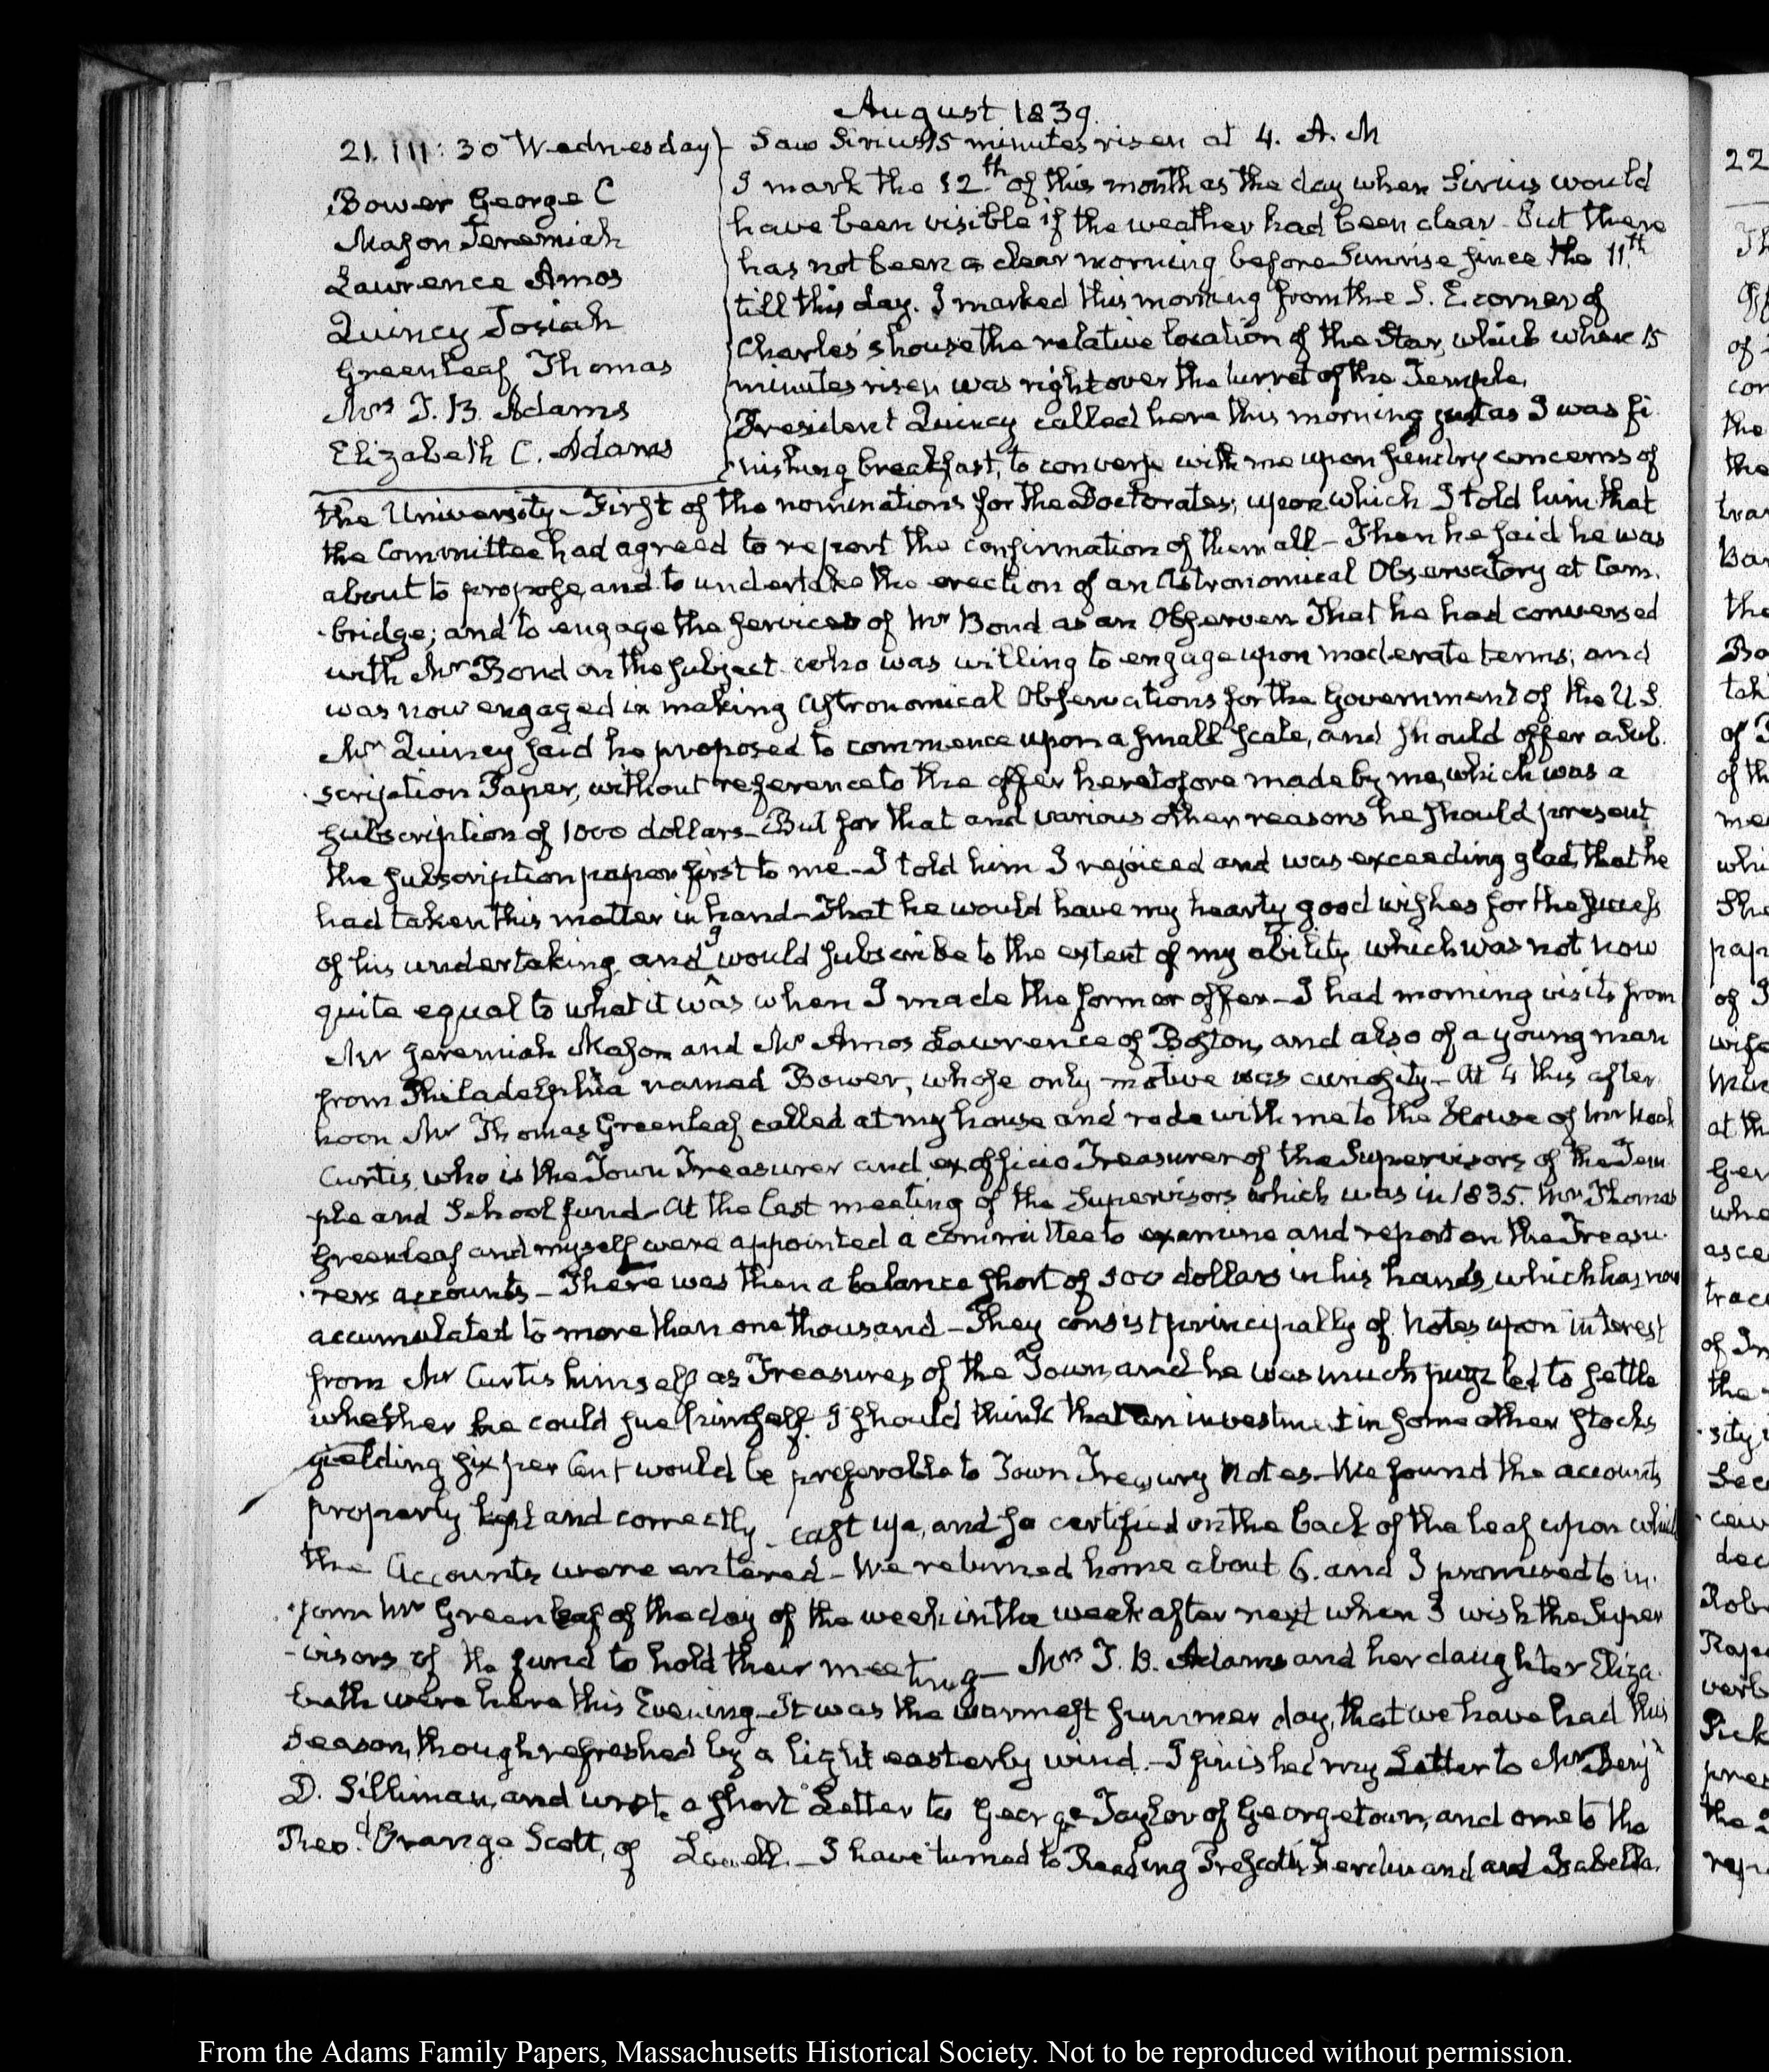 August 1839.
21. III: 30 Wednesday
Bower George C
Mason Jeremiah
Lawrence Amos
Quincy Josiah
Greenleaf Thomas
Mrs T. B. Adams
Elizabeth C. Adams
Saw Sirius 15 minutes risen at 4. A. M
I mark the 12.th of this month as the day when Sirius would
have been visible if the weather had been clear. But there
has not been a clear morning before Sunrise since the 11.th
till this day. I marked this morning from the S. E. corner of
Charles's house the relative location of the Star, which when 15
minutes risen was right over the turret of the Temple.
President Quincy called here this morning just as I was fi
nishing breakfast, to converse with me upon sundry concerns of
the University – First of the nominations for the Doctorates; upon which I told him that
the Committee had agreed to report the confirmation of them all – Then he said he was
about to propose, and to undertake the erection of an Astronomical Observatory at Cam.
-bridge; and to engage the services of Mr Bond as an Observer. That he had conversed
with Mr Bond on the subject who was willing to engage upon moderate terms; and
was now engaged in making Astronomical Observations for the Government of the U.S.
Mr Quincy said he proposed to commence upon a small scale, and should offer a sub.
scription Paper, without reference to the offer heretofore made by me, which was a
subscription of 1000 dollars – But for that and various other reasons he should present
the subscription paper first to me – I told him I rejoiced and was exceeding glad, that he
had taken this matter in hand – That he would have my hearty good wishes for the success
of his undertaking, and I would subscribe to the extent of my ability, which was not now
quite equal to what it was when I made the former offer – I had morning visits from
Mr Jeremiah Mason and Mr Amos Lawrence of Boston, and also of a young man
from Philadelphia named Bower, whose only motive was curiosity – At 4 this after
noon Mr Thomas Greenleaf called at my house and rode with me to the House of Mr Noah
Curtis, who is the Town Treasurer and ex officio Treasurer of the Supervisors of the Tem
ple and School fund – At the last meeting of the Supervisors which was in 1835. Mr Thomas
Greenleaf and myself were appointed a committee to examine and report on the Treasu.
-rers accounts – There was then a balance short of 500 dollars in his hands, which has now
accumulated to more than one thousand – They consist principally of Notes upon interest
from Mr Curtis himself as Treasurer of the Town, and he was much puzzled to settle
whether he could sue himself. I should think that an investment in some other stocks
yielding six per Cent would be preferable to Town Treasury Notes – We found the accounts
properly kept and correctly cast up, and so certified on the back of the leaf upon which
the Accounts were entered – We returned home about 6. and I promised to in.
-form Mr Greenleaf of the day of the week in the week after next when I wish the Super
-visors of the fund to hold their meeting – Mrs T. B. Adams and her daughter Eliza.
beth were here this Evening – It was the warmest summer day, that we have had this
Season, though refreshed by a light easterly wind. – I finished my Letter to Mr Benj
D. Silliman, and wrote a short Letter to George Taylor of Georgetown, and one to the
Revd. Orange Scott, of Lowell. – I have turned to Reading Prescott's Ferdinand and Isabella.
From the Adams Family Papers, Massachusetts Historical Society. Not to be reproduced without permission.